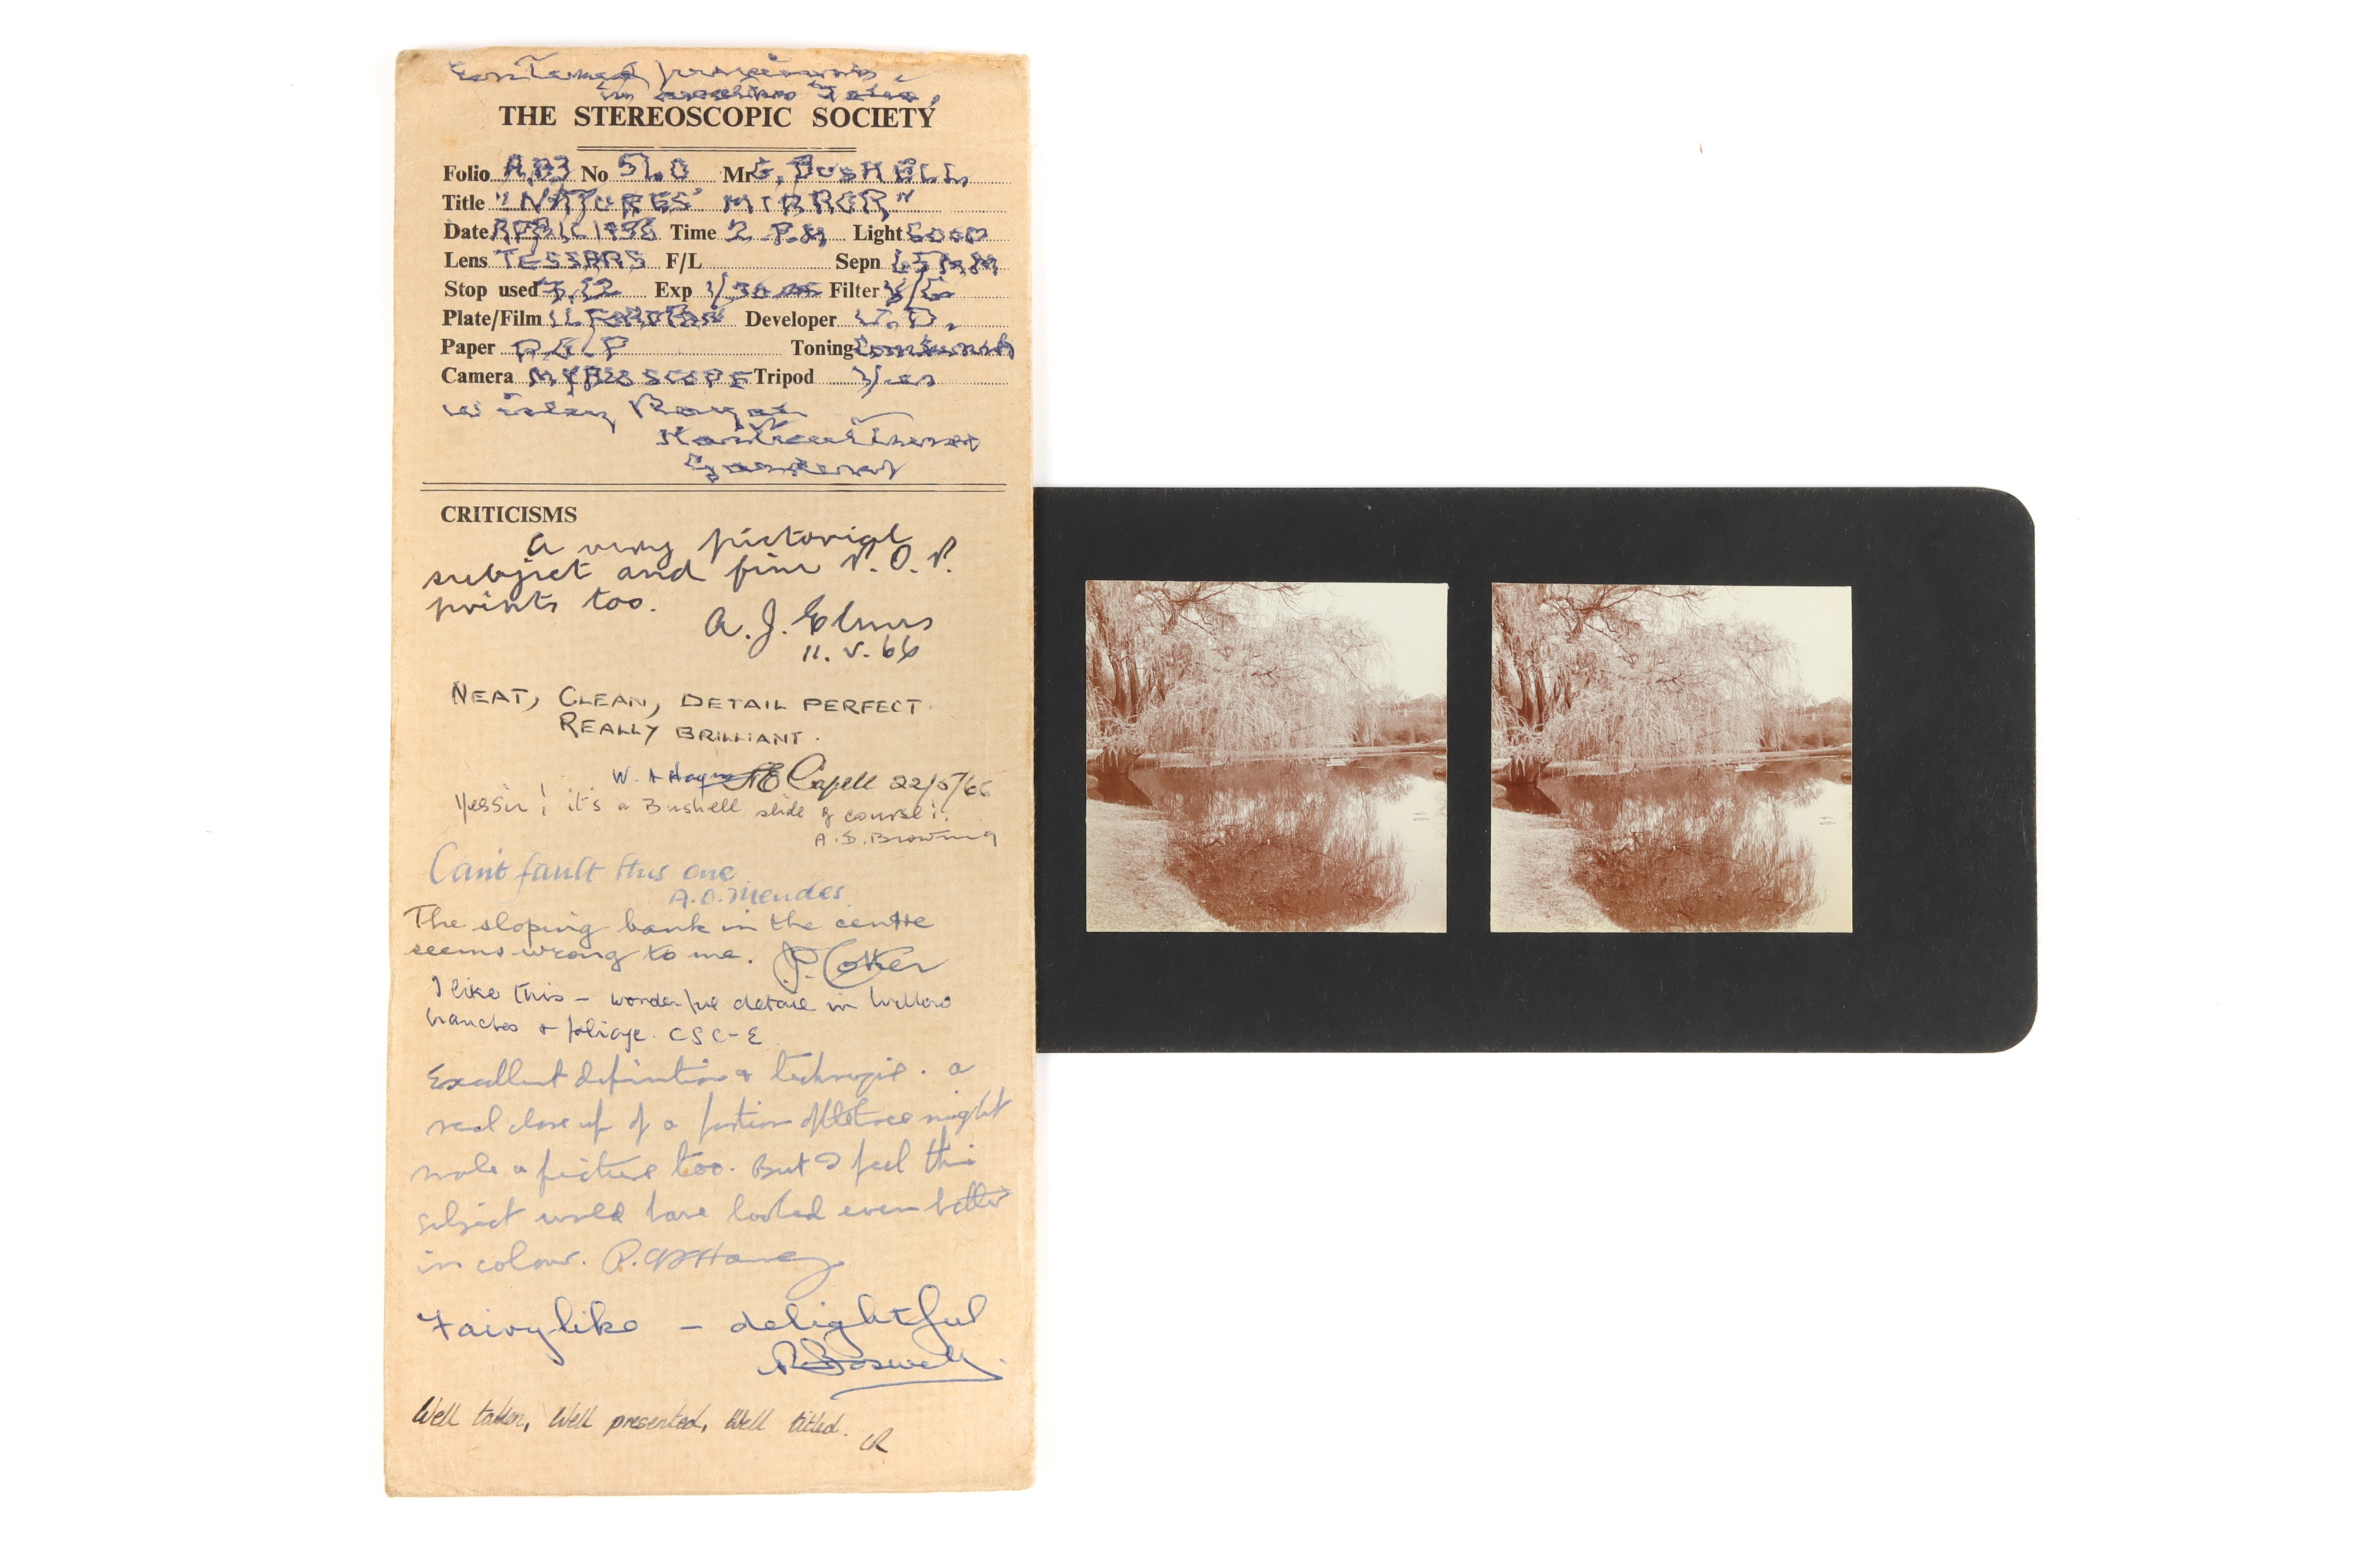 THE STEREOSCOPIC SOCIETY
Folio A.B3 No 51.0 Mr G. BUSHELL
Title "NATURES' MIRROR"
Date APRIL 1956 Time 2 P.M Light GOOD
Lens TESSARS F/L Sepn 65 MM
Stop used F.22 Exp Filter Y/G
Plate/Film Developer U.D.
Paper P.O.P Toning
Camera Tripod Yes
Wisley Royal
Horticultural
Gardens
CRITICISMS
A very pictorial
subject and fine P.O.P.
prints too.
A. J. Elmes
11. V. 66
NEAT, CLEAN, DETAIL PERFECT.
REALLY BRILLIANT.
W. Capell 22/5/66
Yessir! it's a Bushell slide of course!!
A.S. Browning
Can't fault this one
A.O. Mendes.
The sloping bank in the centre
seems wrong to me. P. Cotter
I like this – wonderful detail in willow
branches & foliage. CSC-E
Excellent definition & technique. a
real close up of a portion of the tree might
make a picture too. But I feel this
subject would have looked even better
in colour. P.
Fairylike – delightful
R Boswell.
Well taken, Well presented, Well titled.
CR